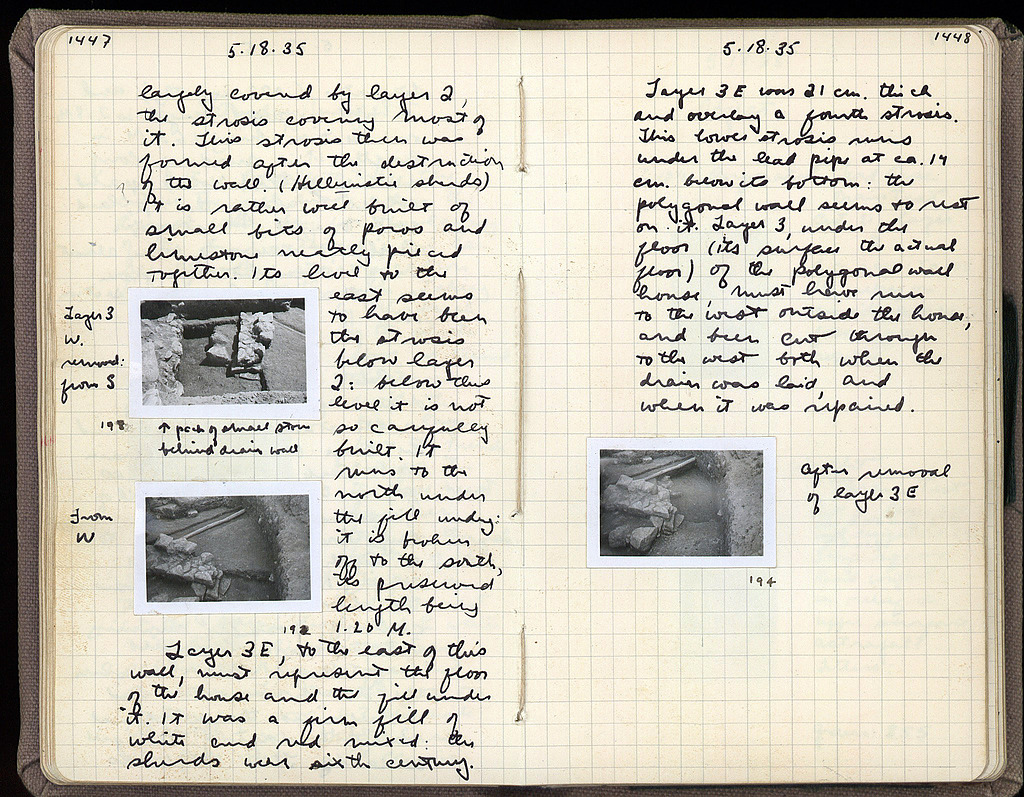 1447
5.18.35
largely covered by layer 2,
the strosis covering most of
it. This strosis then was
formed after the destruction
of the wall. (Hellenistic sherds)
It is rather well built of
small bits of poros and
limestone neatly pieced
together. Its level to the
east seems
to have been
the strosis
below layer
2: below this
level it is not
so carefully
built. It
runs to the
north under
the fill under:
it is broken
off to the south,
its preserved
length being
1.20 M.
Layer 3
W.
removed:
from S
193
↑ pack of small stones
behind drain wall
From
W
192
Layer 3 E, to the east of this
wall, must represent the floor
of the house and the fill under
it. It was a firm fill of
white and red mixed: the
sherds were sixth century.
1448
5.18.35
Layer 3 E was 21 cm. thick
and overlay a fourth strosis.
This lower strosis runs
under the lead pipe at ca. 14
cm. below its bottom: the
polygonal wall seems to rest
on it. Layer 3, under the
floor (its surface the actual
floor) of the polygonal wall
house, must have run
to the west outside the house,
and been cut through
to the west both when the
drain was laid, and
when it was repaired.
After removal
of layer 3 E
194